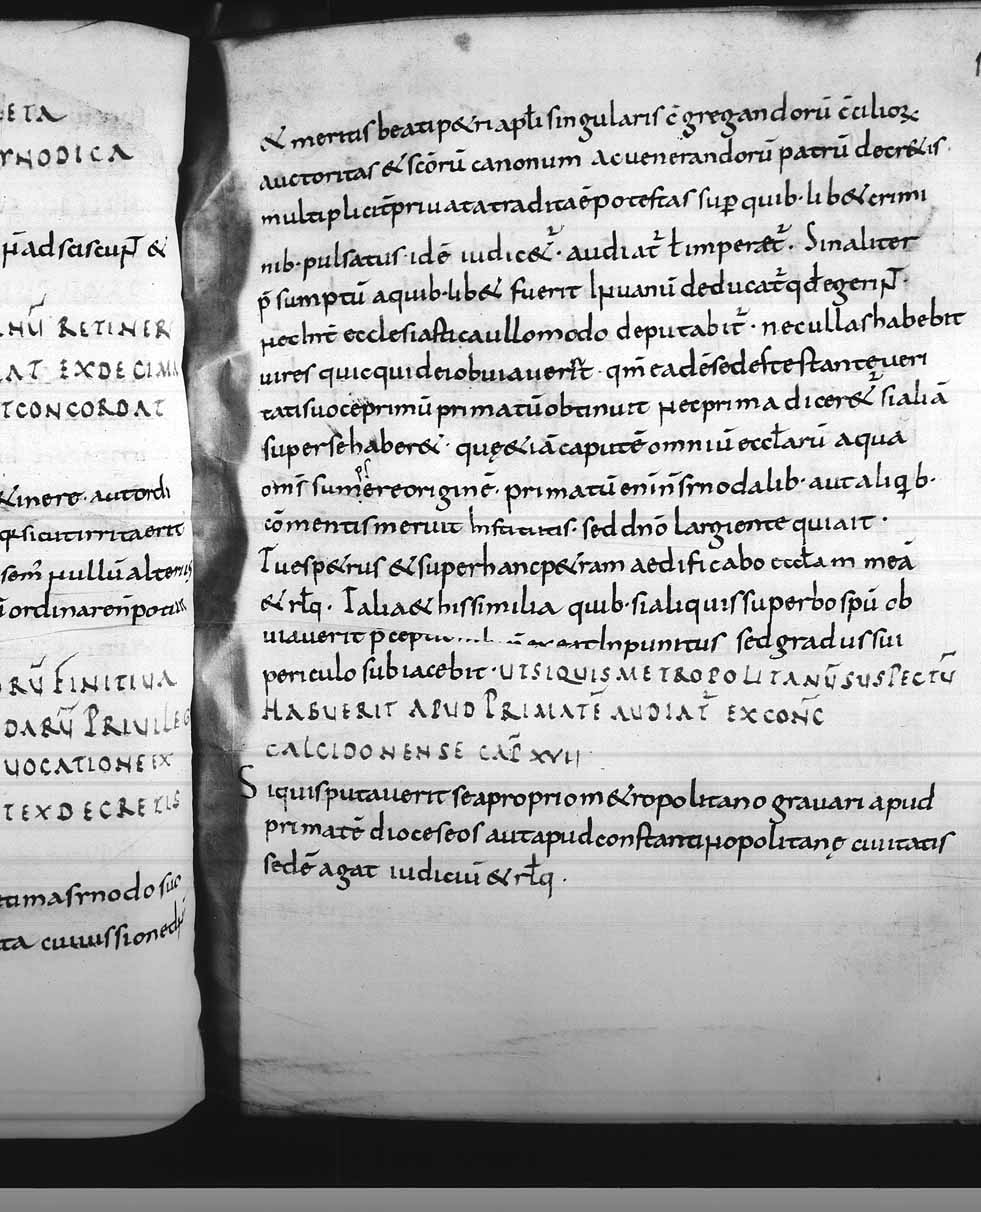 ETA
YNODICA
adsciscunt &
RETINER
AT EXDECIMA
TCONCORDAT
&inere. autordi
q;sicutirritaerit
sem̄ nullū alterius
ordinareñpotuis
RŪ FINITIVA
DARŪ PRIVILEG
VOCATIONE EX
T EX DECRETIS
timasynodo suc
ta cuiussionedū
& meritis beatip&ri apłi singularis c̄gregandorū c̄cilioꝝ
auctoritas & sc̄orū canonum ac venerandorū patrū decr&is.
multipliciť privata traditaē potestas sup quib·lib& crimi
nib·pulsatus·idē iudic&ᷣ· audiatᷣ ł imperætᷣ. Sinaliter
p̄sumptū aquib·lib& fuerit Inuanū deducatᷣ qđ egerinť·
nec hr̄i ecclesiastica ullomodo deputabitᷣ· nec ullas habebit
vires quicquid ei obviaverīt· qm̄ eadē sedes testante veri
tatis voce primū primatū obtinuit nec prima dicer&ᷣ si aliā
super se haber&· quę & iā caput ē omniū eccłarū a qua
om̄s sumpsere originē· primatū eni n̄ synodalib· aut aliq̄b·
cōmentis meruit Institutis· sed dn̄o largiente qui ait·
Tu es p&rus & super hanc p&ram aedificabo eccłam meā
& rłq. Talia & hissimilia quib·si aliquis superbo spū ob
periculo subiacebit· UT SI QUIS METROPOLITANŪ SUSPECTŪ
HABUERIT APUD PRIMATĒ AUDIATᷣ EX CONC̄
CALCIDONENSE CAP̄ XVII
Si quis putaverit se a proprio m&ropolitano gravari apud
primatē dioceseos aut apud constantinopolitanę civitatis
sedē agat iudiciū & rłq.